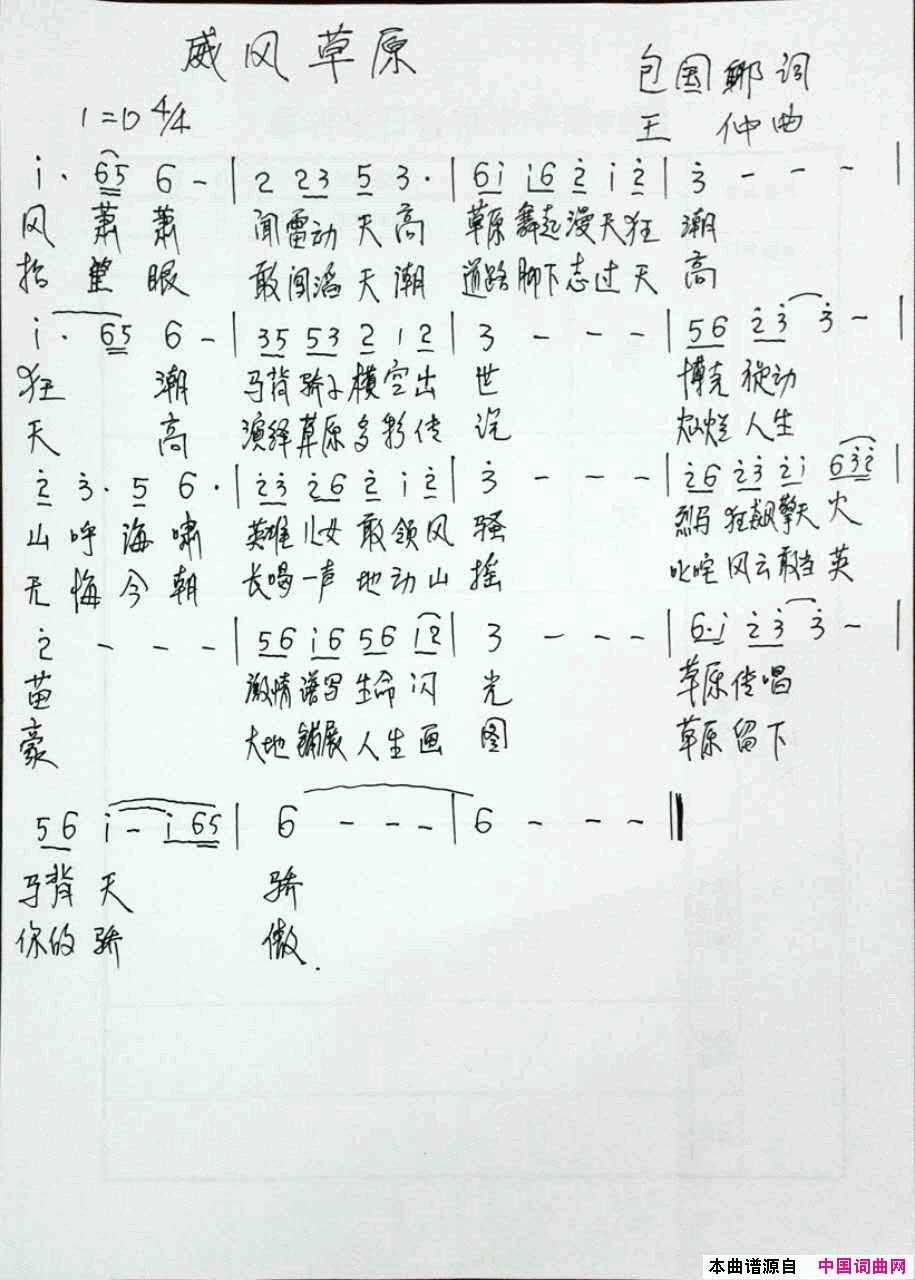 威风草原
包国郰词
1=D 4/4
王 仲曲
i· 65 6 - | 2 23 5 3· | 6i i6 2 i 2 | 3 - - - |
风 萧 萧 闻雷动 天 高 草原舞起漫天狂 潮
抬 望 眼 敢闯滔 天 潮 道路脚下志过天 高
i· 65 6 - | 35 53 2 1 2 | 3 - - - | 56 23 3 - |
狂 潮 马背骄子横空出 世 博克 旋动
天 高 演绎草原多彩传 说 灿烂 人生
2 3· 5 6· | 23 26 2 i 2 | 3 - - - | 26 23 2i 632 |
山 呼 海 啸 英雄儿女敢领风 骚 烈马狂飙擎天火
无 悔 今 朝 长喝一声地动山 摇 叱咤风云敢当英
2 - - - | 56 i6 56 i2 | 3 - - - | 6·i 23 3 - |
苗 激情谱写生命闪 光 草原传唱
豪 大地铺展人生画 图 草原留下
56 i - i65 | 6 - - - | 6 - - - ‖
马背 天 骄
你的 骄 傲.
本曲谱源自 中国词曲网